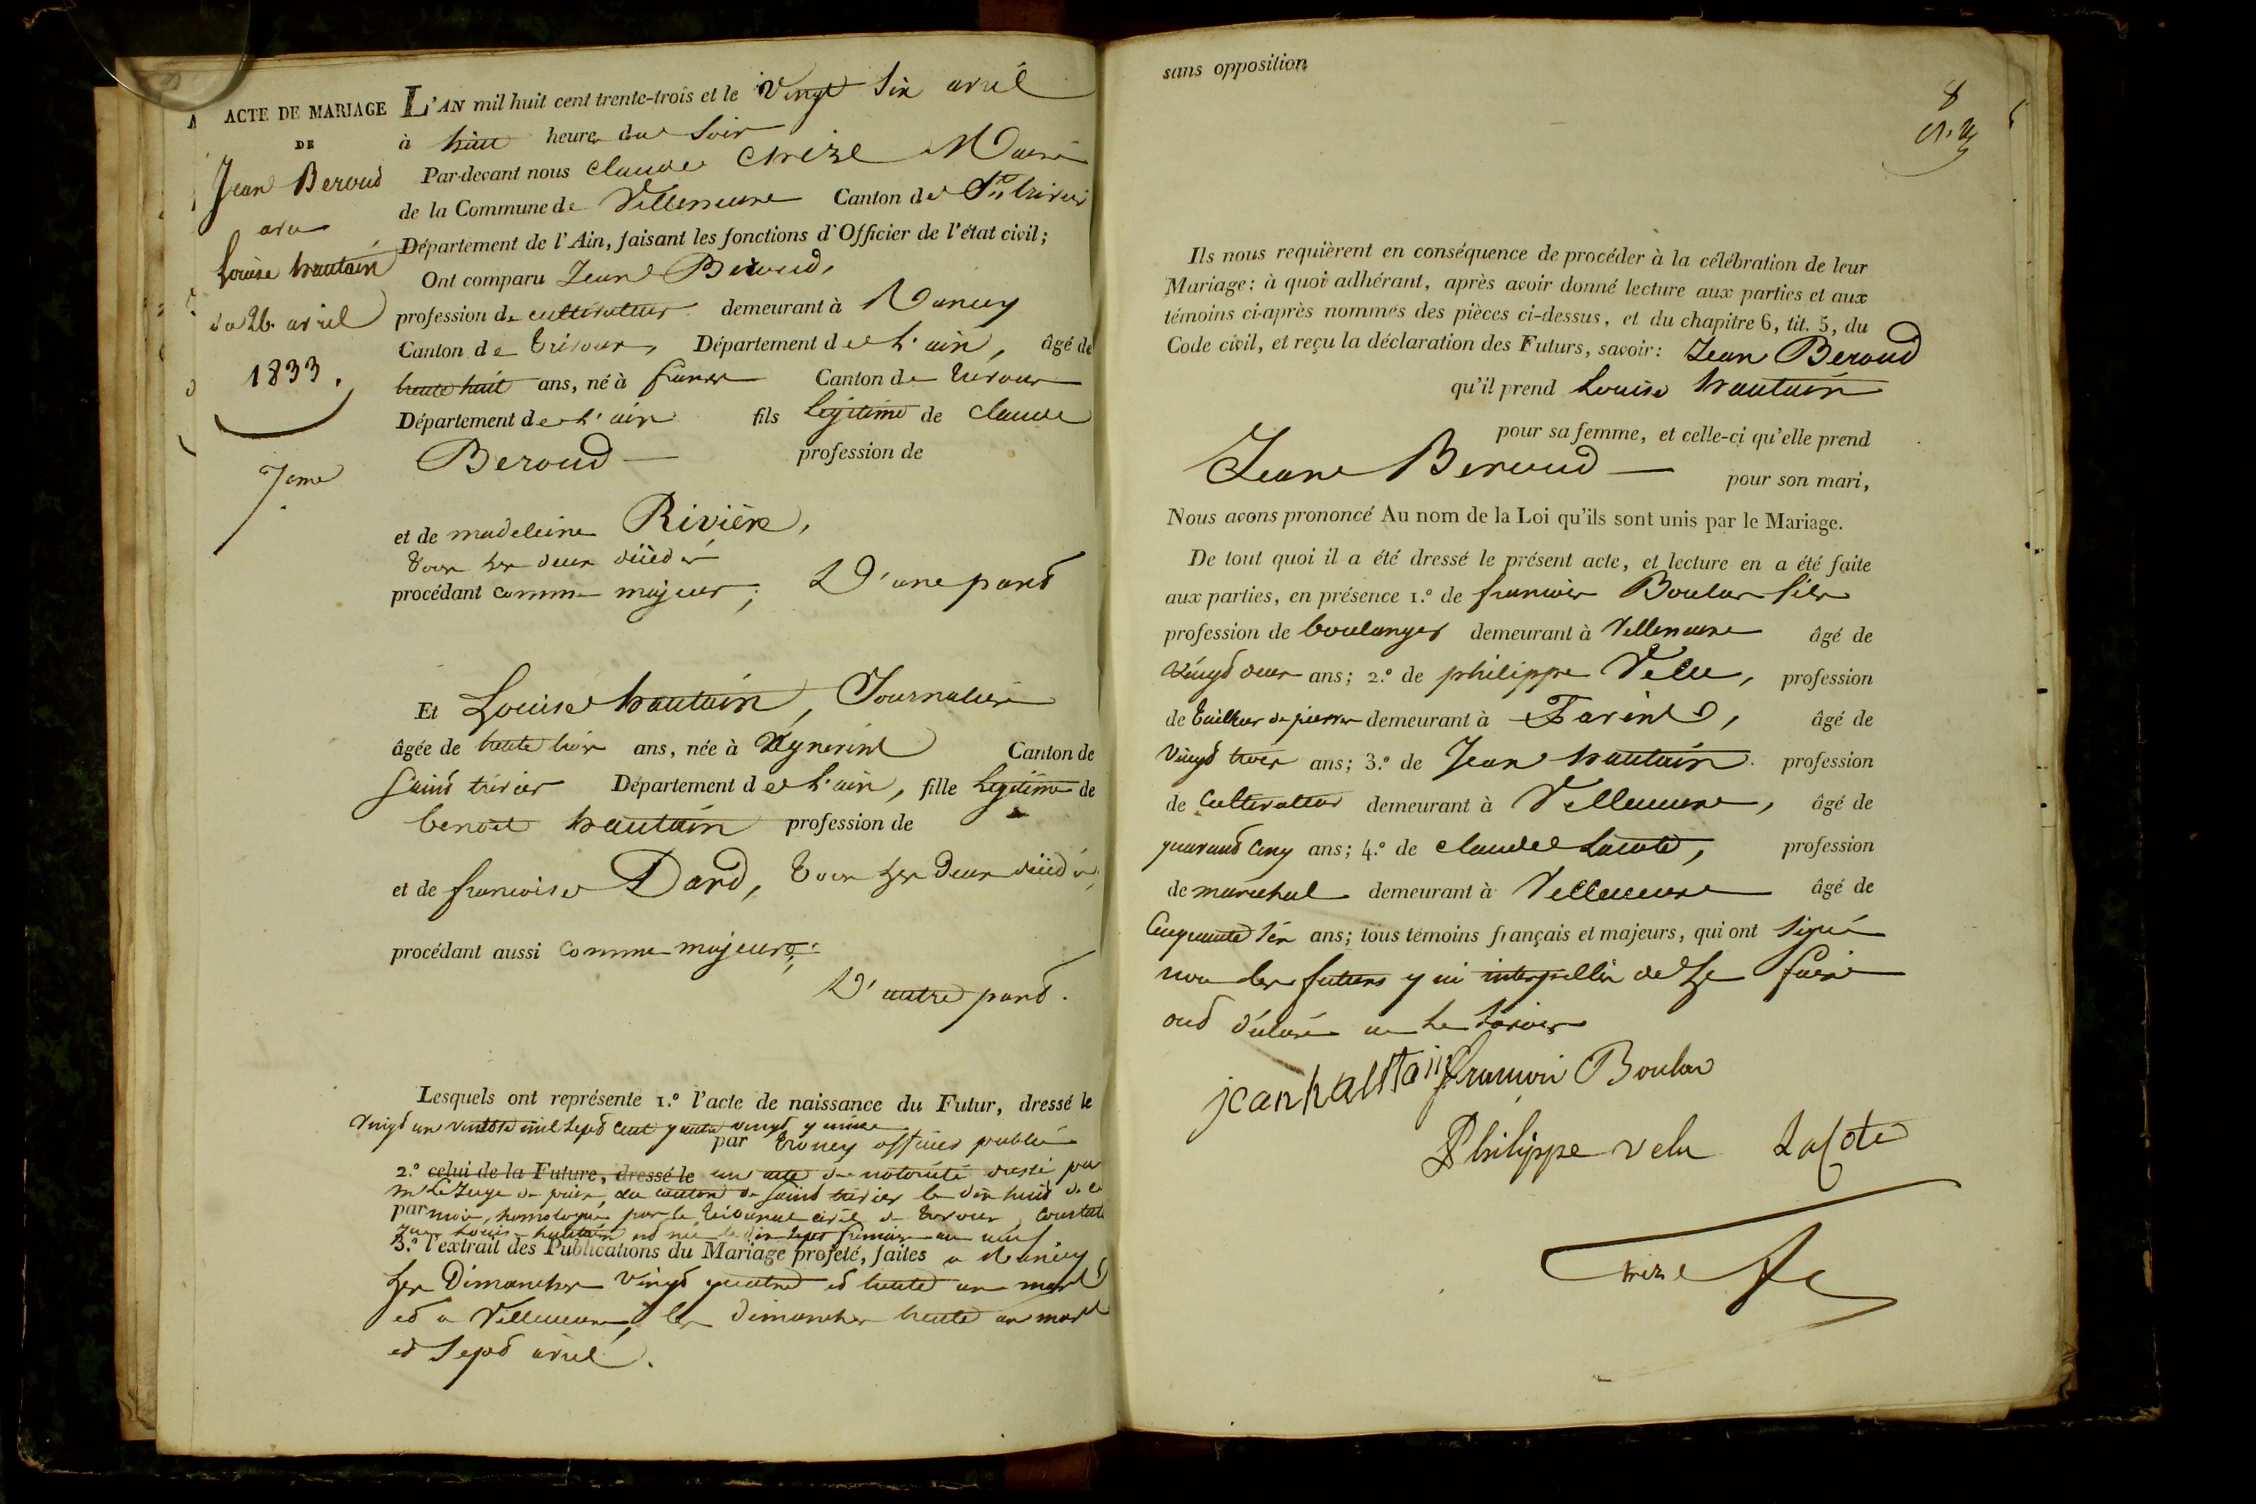 ACTE DE MARIAGE
DE
Jean Beroud
avec
Louise hautain
du 26 avril
1833.
7eme
L'AN mil huit cent trente-trois et le vingt six avril
à huit heures du soir
Par-devant nous claude Maire
de la Commune de Villeneuve Canton de St trivier
Département de l'Ain, faisant les fonctions d'Officier de l'état civil;
Ont comparu Jean Beroud,
profession de cultivateur demeurant à
Canton de trévoux, Département de l'ain, âgé de
trente huit ans, né à Canton de trévoux
Département de l'ain fils légitime de claude
Beroud — profession de
et de madeleine Rivière,
tous les deux décédés
procédant comme majeur; D'une part
Et Louise hautain, Journalière
âgée de trente trois ans, née à Canton de
saint trivier Département de l'ain, fille légitime de
benoit hautain profession de
et de francoise Dard, tous les deux décédés,
procédant aussi comme majeure;
D'autre part.
Lesquels ont représenté 1.º l'acte de naissance du Futur, dressé le
vingt un ventose mil sept cent quatre vingt quinze
par officier public
2.º celui de la Future, dressé le un acte de notoriété dressé par
mr le Juge de paix du canton de saint trivier le dix huit de ce
par mois, homologué par le tribunal civil de trévoux, constate
que Louise hautain est née le dix sept frimaire an neuf
3.º l'extrait des Publications du Mariage projeté, faites a
les Dimanches vingt quatre et trente un mars
et a Villeneuve, les dimanches trente un mars
et sept avril.
sans opposition
8
Ils nous requièrent en conséquence de procéder à la célébration de leur
Mariage: à quoi adhérant, après avoir donné lecture aux parties et aux
témoins ci-après nommés des pièces ci-dessus, et du chapitre 6, tit. 5, du
Code civil, et reçu la déclaration des Futurs, savoir: Jean Beroud
qu'il prend Louise hautain
pour sa femme, et celle-ci qu'elle prend
Jean Beroud — pour son mari,
Nous avons prononcé Au nom de la Loi qu'ils sont unis par le Mariage.
De tout quoi il a été dressé le présent acte, et lecture en a été faite
aux parties, en présence 1.º de francois fils
profession de boulanger demeurant à Villeneuve âgé de
vingt deux ans; 2.º de philippe Velu, profession
de tailleur de pierres demeurant à Fareins, âgé de
vingt trois ans; 3.º de Jean hautain profession
de cultivateur demeurant à Villeneuve, âgé de
quarante cinq ans; 4.º de claude Lacote, profession
de marechal demeurant à Villeneuve âgé de
cinquante six ans; tous témoins français et majeurs, qui ont signé
non les futurs qui interpellés de le faire
ont déclaré ne le savoir
jean hautain
Philippe velu Lacote